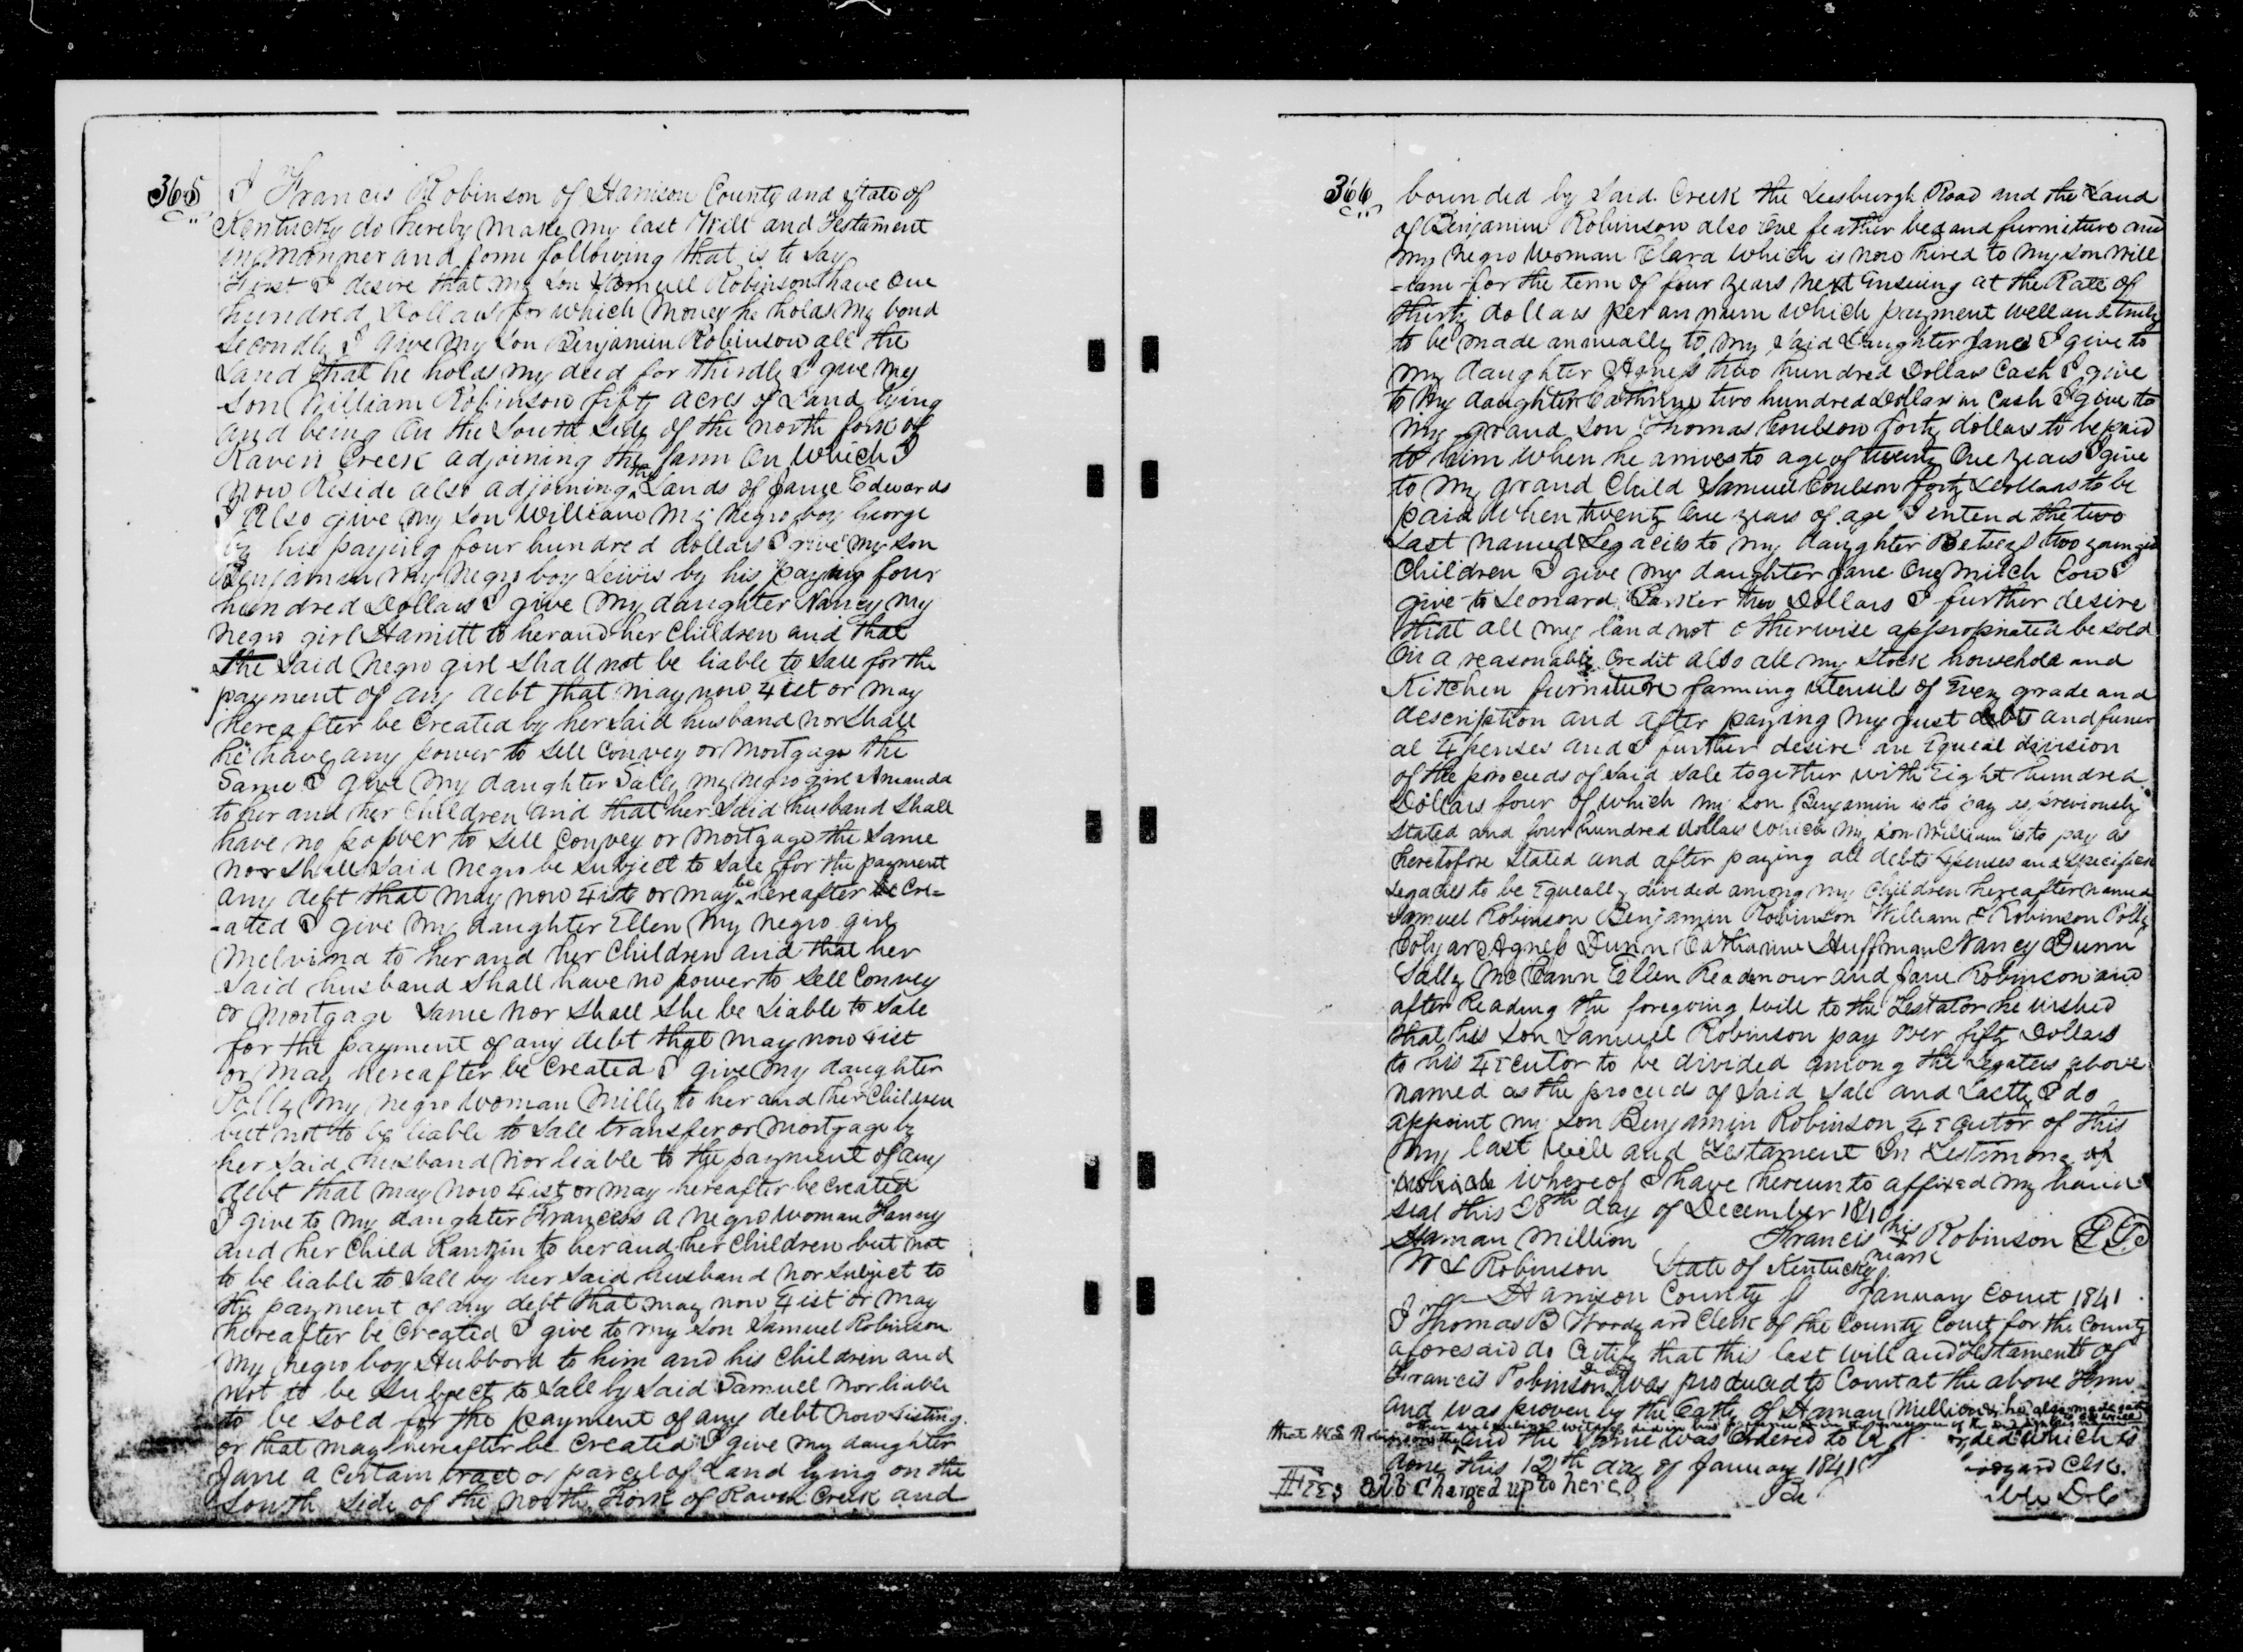 365
I Francis Robinson of Harrison County and State of
Kentucky do hereby make my last Will and Testament
in manner and form following that is to say
First I desire that my Son Samuel Robinson have one
hundred Dollars for which money he holds my bond
secondly I give my Son Benjamin Robinson all the
Land that he holds my deed for thirdly I give my
Son William Robinson fifty acres of Land lying
and being on the South Side of the north fork of
Raven Creek adjoining the farm on which I
now Reside also adjoining the Lands of James Edwards
I also give my son William my negro boy George
by his paying four hundred dollars I give my son
Benjamin my negro boy Lewis by his paying four
hundred Dollars I give my daughter Nancy my
negro girl Harriett to her and her Children and that
the said negro girl shall not be liable to Sale for the
payment of any debt that may now Exist or may
hereafter be created by her said husband nor shall
he have any power to sell convey or mortgage the
Same I give my daughter Sally my negro girl Amanda
to her and her Children and that her said husband shall
have no power to sell convey or mortgage the same
nor shall said negro be subject to sale for the payment
any debt that may now Exist or may be hereafter be cre=
-ated I give my daughter Ellen my negro girl
Melvina to her and her Children and that her
said husband shall have no power to sell convey
or mortgage same nor shall she be Liable to Sale
for the payment of any debt that may now Exist
or may hereafter be created I give my daughter
Polly my negro woman Milly to her and her Children
but not to be liable to Sale transfer or mortgage by
her said husband nor liable to the payment of any
debt that may now Exist or may hereafter be created
I give to my daughter Frances a negro woman Fanny
and her Child Rankin to her and her Children but not
to be liable to Sale by her said husband nor subject to
the payment of any debt that may now Exist or may
hereafter be created I give to my son Samuel Robinson
my negro boy Hubbord to him and his Children and
not to be subject to Sale by said Samuel nor liable
to be sold for the payment of any debt now Existing
or that may hereafter be created I give my daughter
Jane a certain tract or parcel of Land lying on the
South side of the North Fork of Raven Creek and
366
bounded by said Creek the Leesburgh Road and the Land
of Benjamin Robinson also one feather bed and furniture and
my negro woman Clara which is now hired to my son Will
-iam for the term of four years next ensuing at the Rate of
thirty dollars per annum which payment well and truly
to be made annually to my said daughter Jane I give to
my daughter Agness two hundred Dollars Cash I give
to my daughter Cathrine two hundred Dollars in Cash I give to
my grand son Thomas Coulson forty dollars to be paid
to him when he arrives to age of twenty one years I give
to my grand Child Samuel Coulson forty Dollars to be
paid when twenty one years of age I intend the two
Last named Legacies to my daughter Betseys two youngest
Children I give my daughter Jane one milch Cow I
give to Leonard Barker two Dollars I further desire
that all my land not otherwise appropriated be sold
on a reasonable Credit also all my stock household and
Kitchen furniture farming utensils of Every grade and
description and after paying my just debts and funer
al Expenses and I further desire an Equeal division
of the proceeds of said sale together with Eight hundred
Dollars four of which my son Benjamin is to pay as previously
stated and four hundred dollars which my son William is to pay as
heretofore stated and after paying all debts Expenses and specified
legacies to be Equeally divided among my Children hereafter named
Samuel Robinson Benjamin Robinson William F Robinson Polly
Colyar Agness Dunn Catharine Huffman Nancy Dunn
Sally McCann Ellen Readenour and Jane Robinson and
after Reading the foregoing will to the Testator he wished
that his son Samuel Robinson pay over fifty Dollars
to his Executor to be divided among the Legatees above
named as the proceeds of said Sale and Lastly I do
appoint my son Benjamin Robinson Executor of this
my last will and Testament In Testimony of
which whereof I have hereunto affixed my hand
seal this 28th day of December 1840
Haman Million Francis his X mark Robinson
W S Robinson State of Kentucky
Harrison County January Court 1841
I Thomas B Woodyard Clerk of the County Court for the County
aforesaid do Certify that this last will and Testament of
Francis Robinson Decd was produced to Court at the above Term
and was proven by the Oath of Haman Million he also made oath
that W S Robinson the other subscribing witness
and the same was ordered to be which is
done this 12th day of January 1841
Clk.
DC
Fees 826 Charged up to here